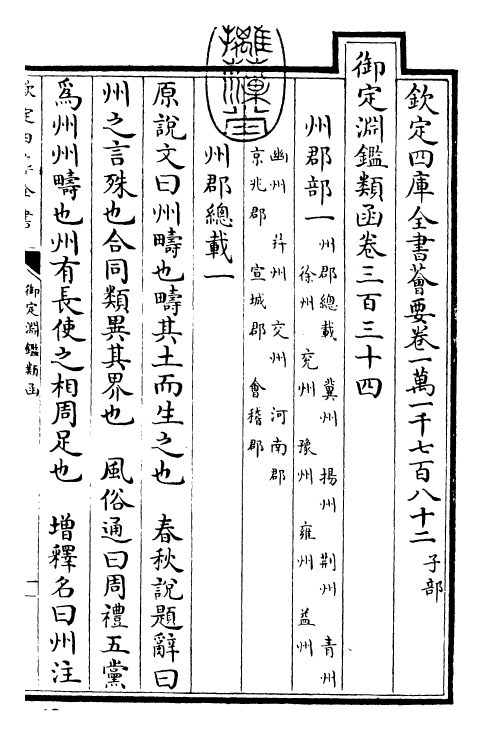 欽定四庫全書薈要卷一萬一千七百八十二 子部
御定淵鑑類函卷三百三十四
州郡部一 州郡總載 冀州 揚州 荆州 青州
徐州 兗州 豫州 雍州 益州
幽州 幷州 交州 河南郡
京兆郡 宣城郡 會稽郡
州郡總載一
原說文曰州疇也疇其土而生之也 春秋說題辭曰
州之言殊也合同類異其界也 風俗通曰周禮五黨
為州州疇也州有長使之相周足也 增釋名曰州注
御定淵鑑類函
一